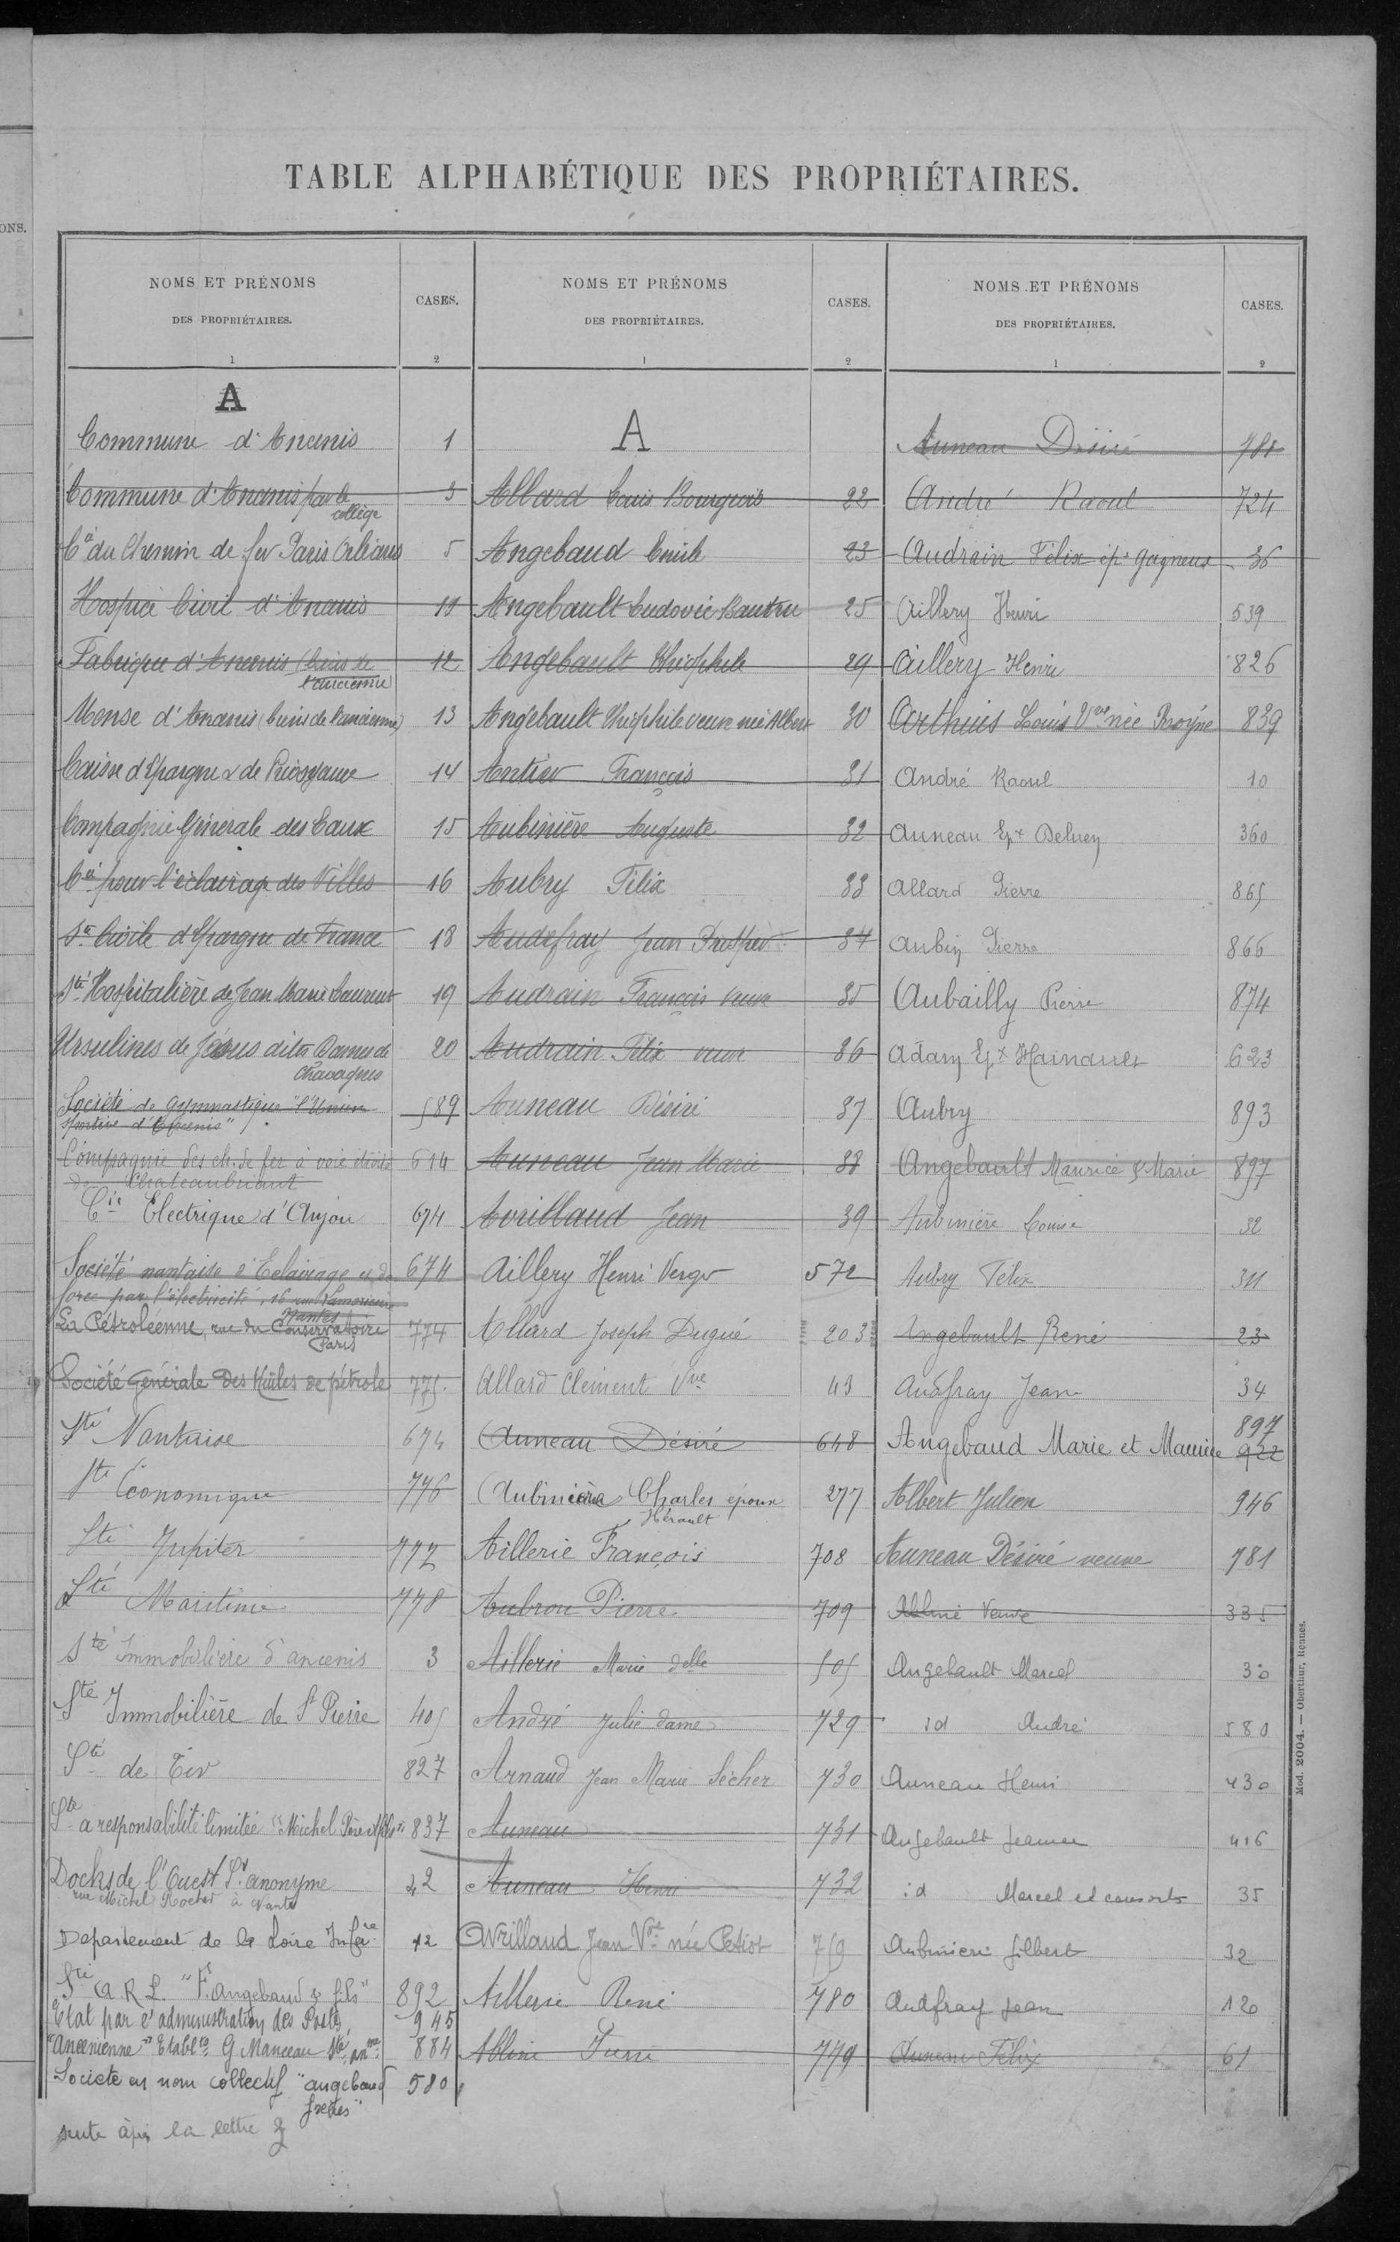 ONS.
TABLE ALPHABÉTIQUE DES PROPRIÉTAIRES.
NOMS ET PRÉNOMS
DES PROPRIÉTAIRES.
1
CASES.
2
A
Commune d'Ancenis 1
Commune d'Ancenis par le 3
collège
Cie du Chemin de fer Paris Orléans 5
Hospice Civil d'Ancenis 11
Fabrique d'Ancenis (biens de 12
l'ancienne)
Mense d'Ancenis (biens de l'ancienne) 13
Caisse d'Epargne & de Prévoyance 14
Compagnie Générale des Eaux 15
Cie pour l'éclairage des Villes 16
Sté Civile d'Epargne de France 18
Sté Hospitalière de Jean Marie Laurent 19
Ursulines de Jésus dites Dames de 20
Chavagnes
Société de Gymnastique "l'Union 589
Sportive d'Ancenis"
Compagnie des ch. de fer à voie étroite 614
de Chateaubriant
Cie Electrique d'Anjou 674
Société nantaise d'Eclairage et de 674
force par l'électricité, 16 rue Lamoricière
Nantes
La Pétroléenne, rue du Conservatoire 774
Paris
Société Générale des Huiles de pétrole 775
Sté Nantaise 674
Sté Economique 776
Sté Jupiter 777
Sté Maritime 778
Sté Immobilière d'ancenis 3
Sté Immobilière de St Pierre 405
Sté de Tir 827
Sté a responsabilité limitée "Michel Père et fils" 837
Docks de l'Ouest Sté anonyme 42
rue Michel Rocher à Nantes
Département de la Loire Infre 12
Sté A R L. "F. Angebaud & fils" 892
Etat par l'administration des Postes 945
"Ancenienne" Etablts G Manceau Sté anme 884
Société en nom collectif "angebaud 580
frères"
suite après la lettre Z
NOMS ET PRÉNOMS
DES PROPRIÉTAIRES.
1
CASES.
2
A
Allard Louis Bourgeois 22
Angebaud Emile 23
Angebault Ludovic Bautru 25
Angebault Théophile 29
Angebault Théophile veuve née Albert 30
Antier François 31
Aubinière Auguste 32
Aubry Félix 33
Audefray Jean 34
Audrain François veuve 35
Audrain Félix veuve 36
Auneau Désiré 37
Auneau Jean Marie 38
Avrillaud Jean 39
Aillery Henri Verger 572
Allard Joseph Dugué 203
Allard Clément Vve 43
Auneau Désiré 648
Aubinière Charles époux 277
Hérault
Aillerie François 708
Aubron Pierre 709
Aillerie Marie delle 505
André Julie dame 729
Arnaud Jean Marie Sécher 730
Auneau 731
Auneau Henri 732
Avrillaud Jean Vve née Petiot 759
Aillerie René 780
Abline Pierre 779
NOMS ET PRÉNOMS
DES PROPRIÉTAIRES.
1
CASES.
2
Auneau Désiré 781
André Raoul 724
Audrain Félix ép. Gagneux 36
Aillery Henri 539
Aillery Henri 826
Arthuis Louis Vve née Royné 839
André Raoul 10
Auneau Ex 360
Allard Pierre 865
Aubin Pierre 866
Aubailly Pierre 874
Adam Ex Hainault 623
Aubry 893
Angebault Maurice & Marie 897
Aubinière Louise 32
Aubry Félix 311
Angebault René 23
Audfray Jean 34
897
Angebaud Marie et Maurice 922
Albert Julien 946
Auneau Désiré veuve 781
Abline Veuve 335
Angebault Marcel 30
id André 580
Auneau Henri 430
Angebault Jeanne 416
id Marcel et consorts 35
Aubinière Gilbert 32
Audfray Jean 120
Auneau Félix 61
Mod. 2004. — Oberthur, Rennes.